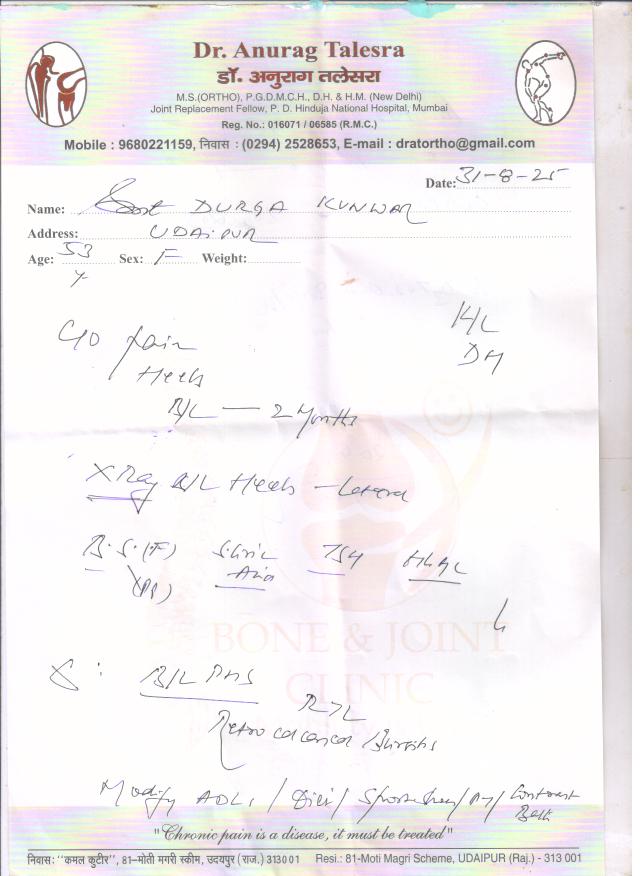 Dr. Anurag Talesra
डॉ. अनुराग तलेसरा
M.S.(ORTHO), P.G.D.M.C.H., D.H. & H.M. (New Delhi)
Joint Replacement Fellow, P. D. Hinduja National Hospital, Mumbai
Reg. No.: 016071 / 06585 (R.M.C.)
Mobile : 9680221159, निवास : (0294) 2528653, E-mail : dratortho@gmail.com
Date: 31-8-25
Name: DURGA KUNWAR
Address: UDAIPUR
Age: 53 y Sex: F Weight:
K/C
DM
C/O pain
Heels
B/L — 2 Months
X Ray B/L Heels - Lateral
B.S.(F) S. Uric TSH
(PP) Acid
BONE & JOINT
CLINIC
B/L
R>L
Retro calcaneal Bursitis
Modify ADLs / / / / Contrast
Bath
"Chronic pain is a disease, it must be treated"
निवास: "कमल कुटीर", 81-मोती मगरी स्कीम, उदयपुर (राज.) 313001 Resi.: 81-Moti Magri Scheme, UDAIPUR (Raj.) - 313 001